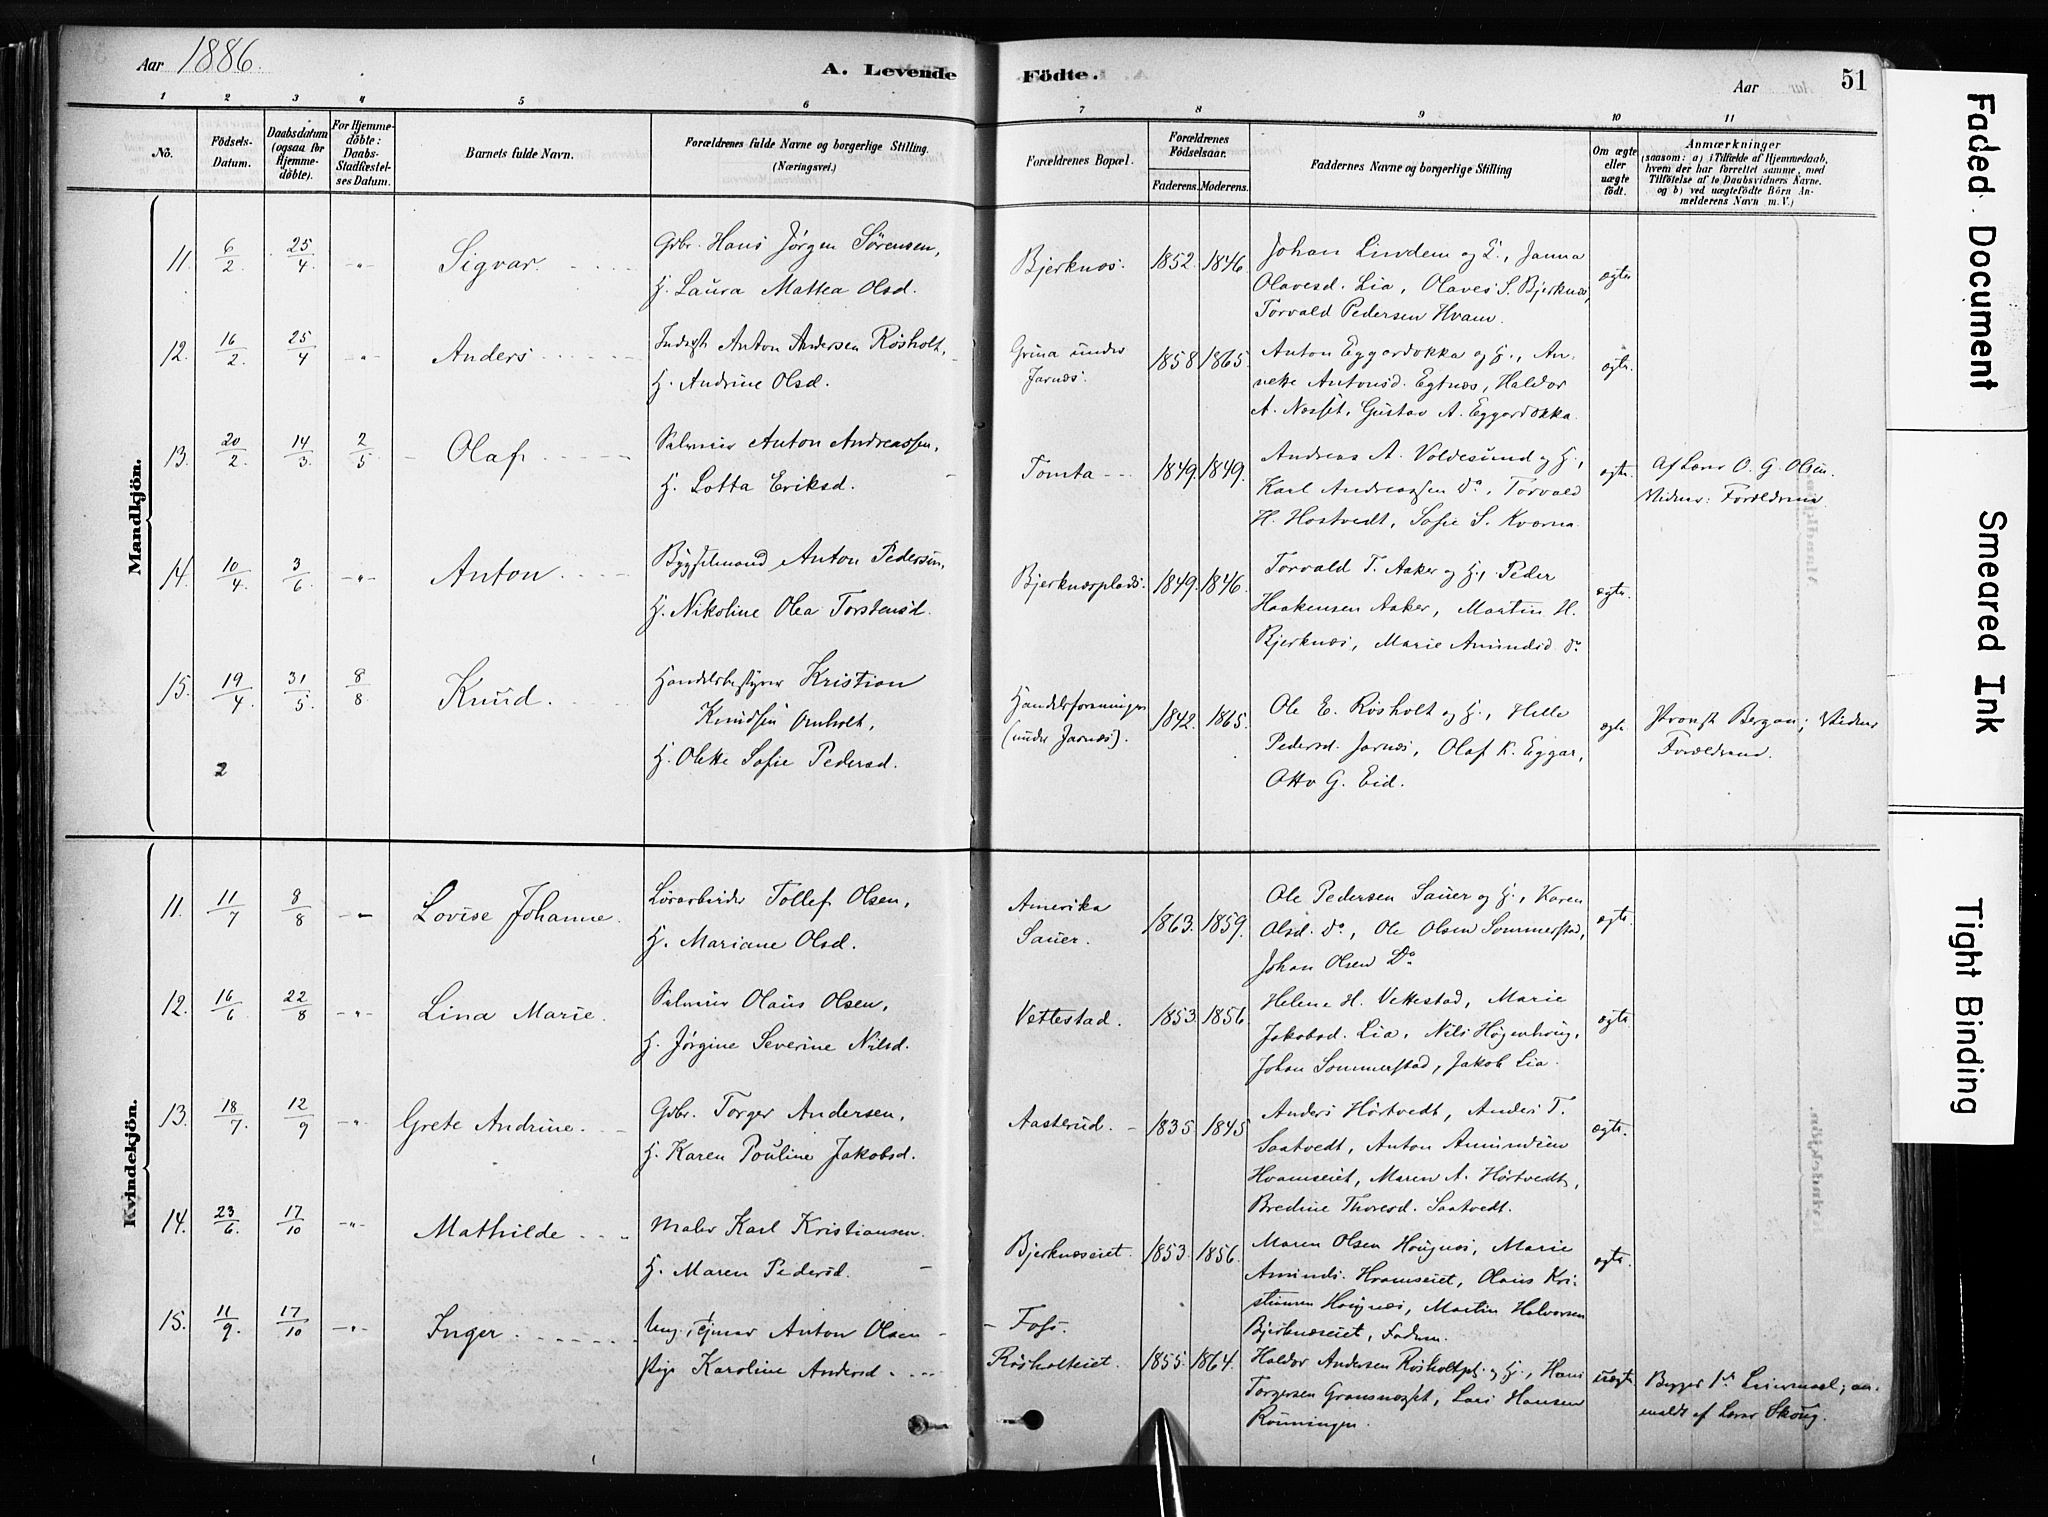 Aar 1886.
A. Levende Födte.
Aar
51
1 2 3 4 5 6 7 8 9 10 11
Nô.
Födsels-Datum.
Daabsdatum (ogsaa for Hjemmedöbte).
For Hjemmedöbte: Daabs-Stadfæstelses Datum.
Barnets fulde Navn.
Forældrenes fulde Navne og borgerlige Stilling. (Næringsvei.)
Forældrenes Bopæl.
Forældrenes Födselsaar.
Faderens. Moderens.
Faddernes Navne og borgerlige Stilling
Om ægte eller uægte födt.
Anmærkninger
(saasom: a) i Tilfælde af Hjemmedaab, hvem der har forrettet samme, med Tilföielse af to Daabsvidners Navne, og b) ved uægtefödte Börn Anmelderens Navn m. V.)
Mandkjön.
11. 6/2 25/4 -"- Sigvar.
Gdbr. Hans Jørgen Sørensen,
H. Laura Mathea Olsd.
Bjerknæs. 1852. 1846.
Johan Lindem og H., Janna
Olavesd. Lia, Olaves S. Bjerknæs,
Torvald Pedersen Hvam.
ægte
12. 16/2 25/4 -"- Anders
Inderst Anton Andersen Røsholt,
H. Andrine Olsd.
Grina under
Jarnæs.
1858 1865.
Anton Eggerdokka og H., An-
nette Antonsd. Egtnæs, Haldor
A. Næsset, Gustav A. Eggerdokka.
ægte.
13. 20/2 14/3 2/5 Olaf
Selveier Anton Andreassen,
H. Lotta Eriksd.
Tomta 1849. 1849.
Andreas A. Voldesund og H.,
Karl Andreassen do, Torvald
H. Hostvedt, Sofie S. Kværna
ægte.
Af Lærer O. G. Olsen.
Vidner: Forældrene
14. 10/4 3/6 -"- Anton
Bygselmand Anton Pedersen,
H. Nikoline Olea Torstensd.
Bjerknæsplads. 1849. 1846.
Torvald T. Aaker og H., Peder
Haakensen Aaker, Martin H.
Bjerknæs, Marie Amundsd do.
ægte.
15. 19/4 31/5 8/8 Knud.
Handelsbestyrer Kristian
Knudsen Ornholt,
H. Olette Sofie Pedersd.
Handelsforeningen
(under Jarnæs).
1842. 1865.
Ole E. Røsholt og H., Helle
Pedersd. Jarnæs, Olaf K. Eggar,
Otto G. Eid.
ægte
Provst Bergan; Vidner
Forældrene.
2
Kvindekjön.
11. 11/7 8/8 -"- Lovise Johanne.
Løsarbeider Tollef Olsen,
H. Mariane Olsd.
Amerika
Sauer.
1863. 1859.
Ole Pedersen Sauer og H., Karen
Olsd. do, Ole Olsen Sommerstad,
Johan Olsen Do
ægte.
12. 16/6 22/8 -"- Lina Marie.
Selveier Olaus Olsen,
H. Jørgine Severine Nilsd.
Vettestad. 1853. 1856
Helene H. Vettestad, Marie
Jakobsd. Lia, Nils Høgenhoug,
Johan Sommerstad, Jakob Lia.
ægte
13. 18/7 12/9 -"- Grete Andrine.
Gdbr. Torger Andersen,
H. Karen Pouline Jakobsd.
Aasterud. 1835. 1845
Anders Hørtvedt, Anders T.
Saatvedt, Anton Amundsen
Hvamseiet, Maren A. Hørtvedt,
Bredine Thoresd. Saatvedt.
ægte.
14. 23/6 17/10 -"- Mathilde
Maler Karl Kristiansen.
H. Maren Pedersd.
Bjerknæseiet. 1853. 1856.
Maren Olsen Hougnæs, Marie
Amunds. Hvamseiet, Olaus Kri-
stiansen Hougnæs, Martin Halvorsen
Bjerknæseiet, Faderen.
ægte.
15. 11/9 17/10 -"- Inger
Ung. Tjener Anton Olsen
Pige Karoline Andersd.
Foss.
Røsholteiet. 1855. 1864.
Haldor Andersen Røsholtpl. og H., Hans
Torgersen Gransnæsset, Lars Hansen
Rønningen.
uægte
Begges 1ste Leiermaal; an-
meldt af Lærer Skoug.
Faded Document
Smeared Ink
Tight Binding